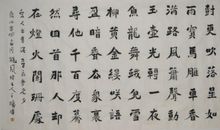 樹更吹落星如
雨寶馬雕車香
滿路鳳簫聲動
玉壺光轉一夜
魚龍舞蛾兒雪
柳黃金縷笑語
盈盈暗香去衆裏
尋他千百度驀
然回首那人卻
在燈火闌珊處